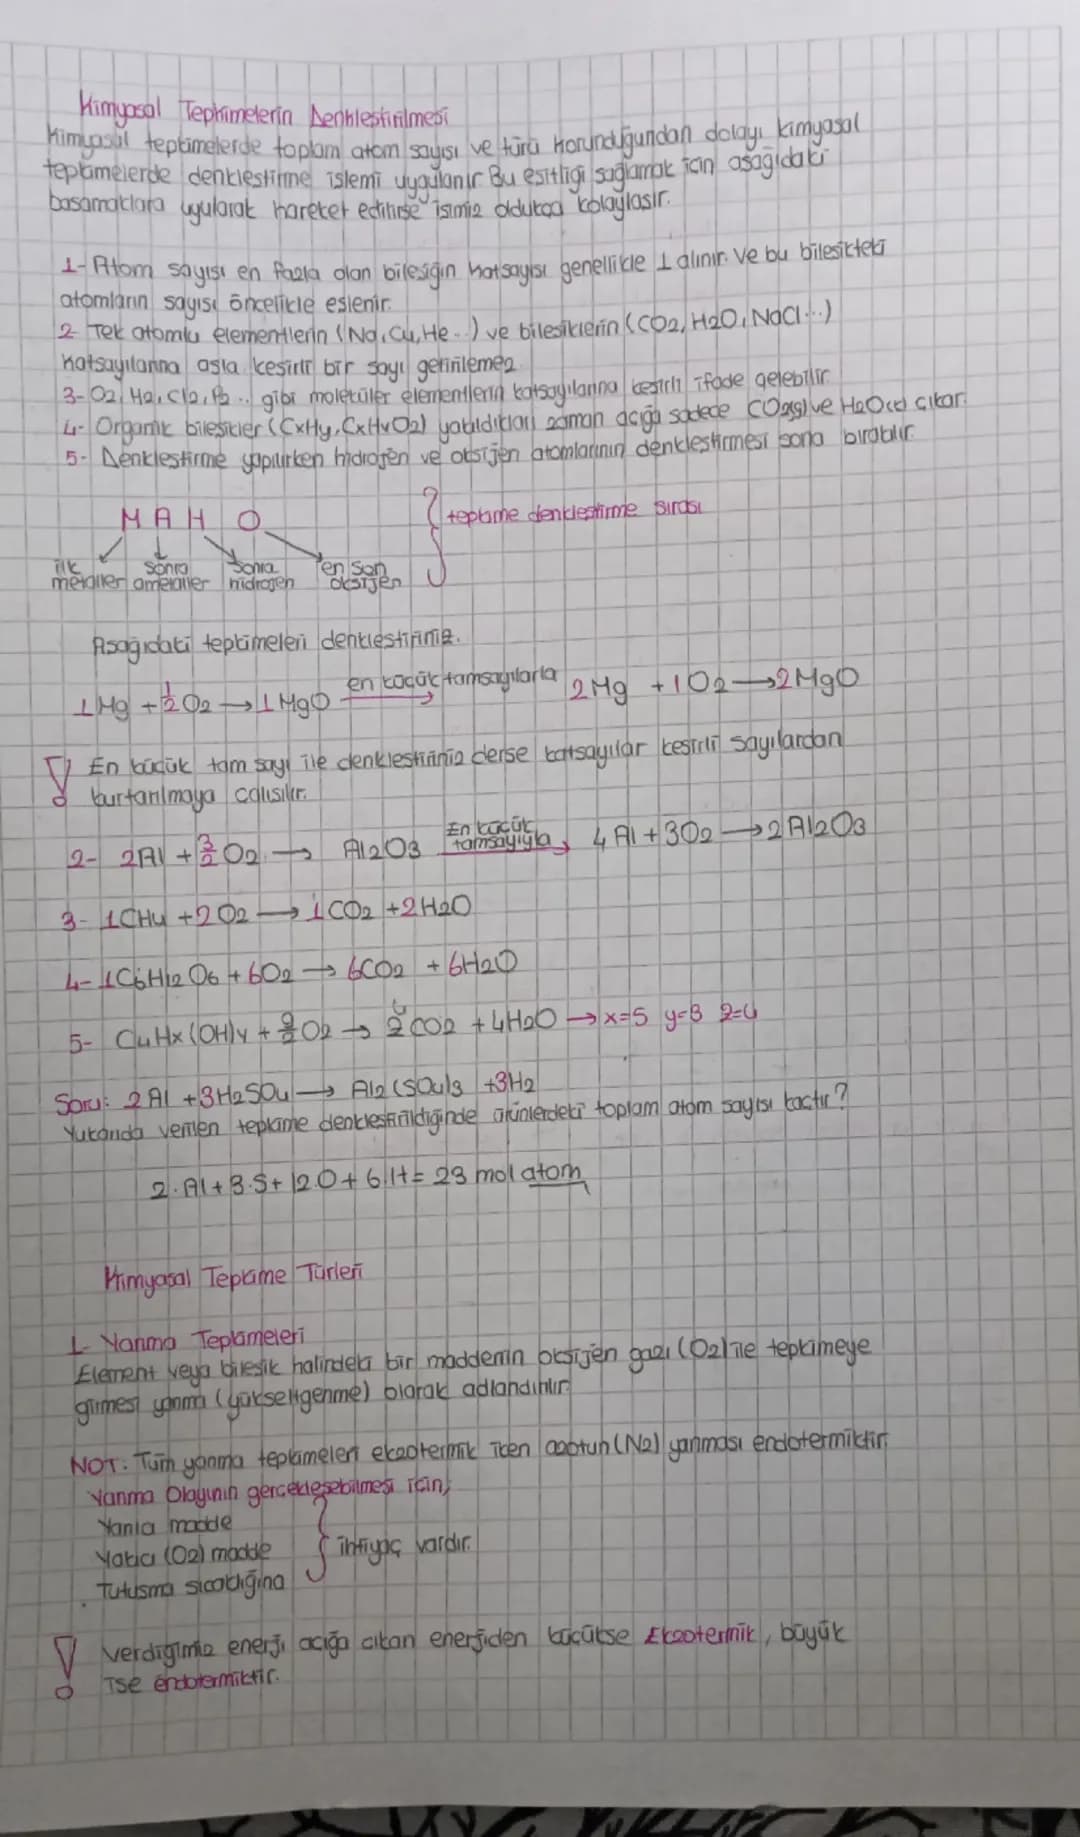 Kimyasal Tepkimelerin Denkleştirilmesi
Kimyasal tepkimelerde toplam atom sayısı ve türü korunduğundan dolayı kimyasal
tepkimelerde denkleştirme islemi uygulanır. Bu esitligi saglamak icin asagıdaki
basamaklara uyularak hareket edilirse isimiz oldukça kolaylasır.
1- Atom sayısı en fazla olan bilesigin katsayısı genellikle 1 alınır. Ve bu bilesikteki
atomların sayısı öncelikle eslenir.
2- Tek atomlu elementlerin (Na, Cu, He...) ve bilesiklerin (CO2, H2O, NaCl...)
katsayılarına asla kesirli bir sayı getirilemez.
3- O2, H2, Cl2, F2... gibi moleküler elementlerin katsayılarına kesirli ifade gelebilir.
4- Organik bilesikler (CxHy, CxHyO2) yakıldıkları zaman açığa sadece CO2(g) ve H2O(l) çıkar.
5- Denklestirme yapılırken hidrojen ve oksijen atomlarının denklestirmesi sona bırakılır.
M A H O
ilk metaller
sonra ametaller
sonra hidrojen
en son oksijen
tepkime denklestirme sırası
Asağıdaki tepkimeleri denklestiriniz.
1Mg + 1/2 O2 → 1MgO en küçük tamsayılarla → 2Mg + 1O2 → 2MgO
! En küçük tam sayı ile denklestiriniz derse katsayılar kesirli sayılardan
kurtarılmaya calısılır.
2- 2Al + 3/2 O2 → Al2O3 En küçük tamsayıyla → 4Al + 3O2 → 2Al2O3
3- 1CH4 + 2O2 → 1CO2 + 2H2O
4- 1C6H12O6 + 6O2 → 6CO2 + 6H2O
5- C4Hx(OH)y + 9/2 O2 → 4 z CO2 + 4H2O → x=5 y=3 z=4
Soru: 2Al + 3H2SO4 → Al2(SO4)3 + 3H2
Yukarıda verilen tepkime denklestirildiğinde ürünlerdeki toplam atom sayısı kactır?
2.Al + 3.S + 12.O + 6.H = 23 mol atom
Kimyasal Tepkime Türleri
1- Yanma Tepkimeleri
Element veya bilesik halindeki bir maddenin oksijen gazı (O2) ile tepkimeye
girmesi yanma (yükseltgenme) olarak adlandırılır.
NOT: Tüm yanma tepkimeleri ekzotermik iken azotun (N2) yanması endotermiktir.
Yanma Olayının gerçeklesebilmesi için;
Yanıcı madde
Yakıcı (O2) madde
Tutusma sıcaklığına
ihtiyaç vardır.
! Verdiğimiz enerji açığa cıkan enerjiden küçükse Ekzotermik, büyük
ise endotermiktir.